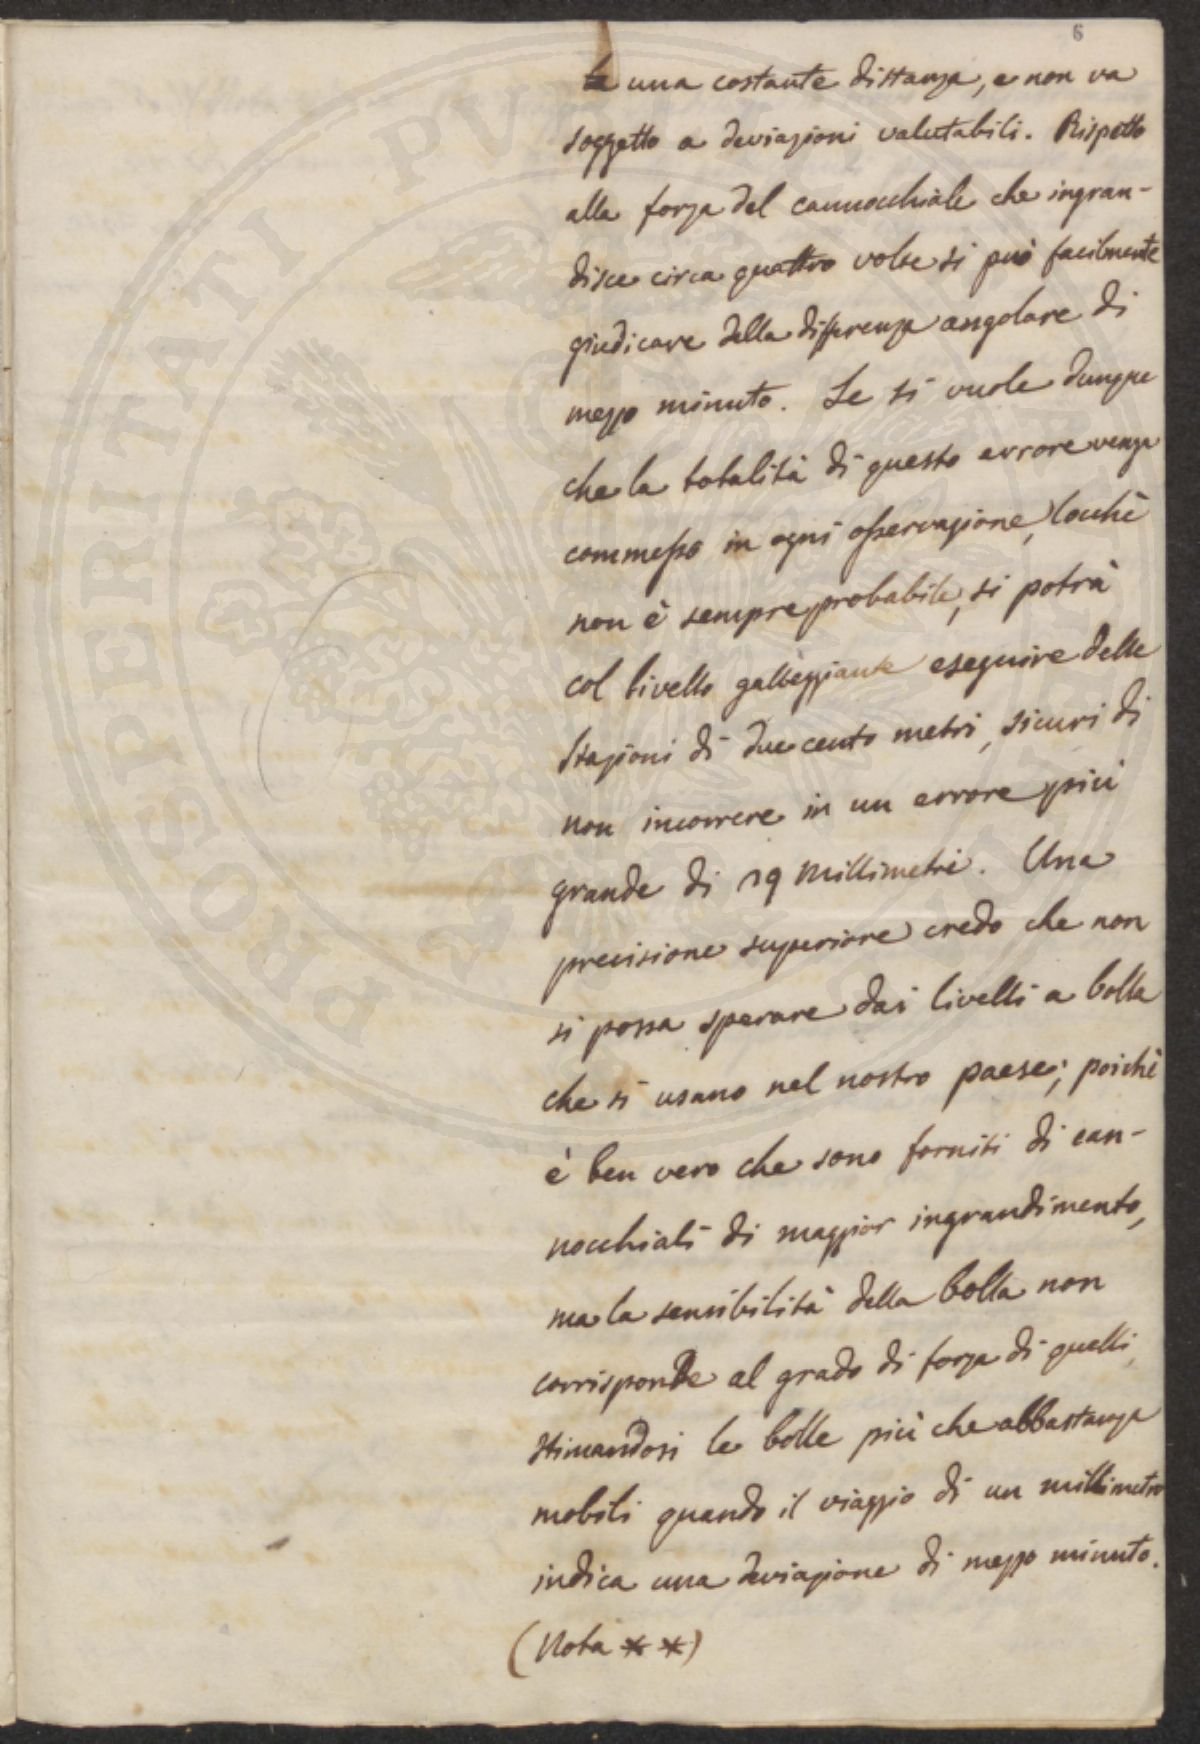 6
una costante distanza, e non va
soggetto a deviazioni valutabili. Rispetto
alla forza del cannocchiale che ingran-
disce circa quattro volte si può facilmente
giudicare della differenza angolare di
mezzo minuto. Se si vuole dunque
che la totalità di questo errore venga
commesso in ogni osservazione, locchè
non è sempre probabile, si potrà
col livello galleggiante eseguire delle
Stazioni di due cento metri, sicuri di
non incorrere in un errore più
grande di 29 Millimetri. Una
precisione superiore credo che non
si possa sperare dai livelli a bolla
che si usano nel nostro paese; poichè
è ben vero che sono forniti di can-
nocchiali di maggior ingrandimento,
ma la sensibilità della bolla non
corrisponde al grado di forza di quelli,
stimandosi le bolle più che abbastanza
mobili quando il viaggio di un millimetro
indica una deviazione di mezzo minuto.
(Nota * *)
PROSPERITATI PUBLICAE